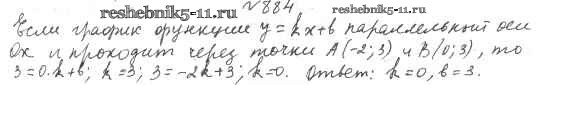 №884 reshebnik5-11.ru
Если график функции y = kx+b параллельный оси
Ox и проходит через точки A(-2;3) и B(0;3), то
3=0·k+b; k=3; 3=-2k+3; k=0. Ответ: k=0, b=3.
www.reshebnik5-11.ru